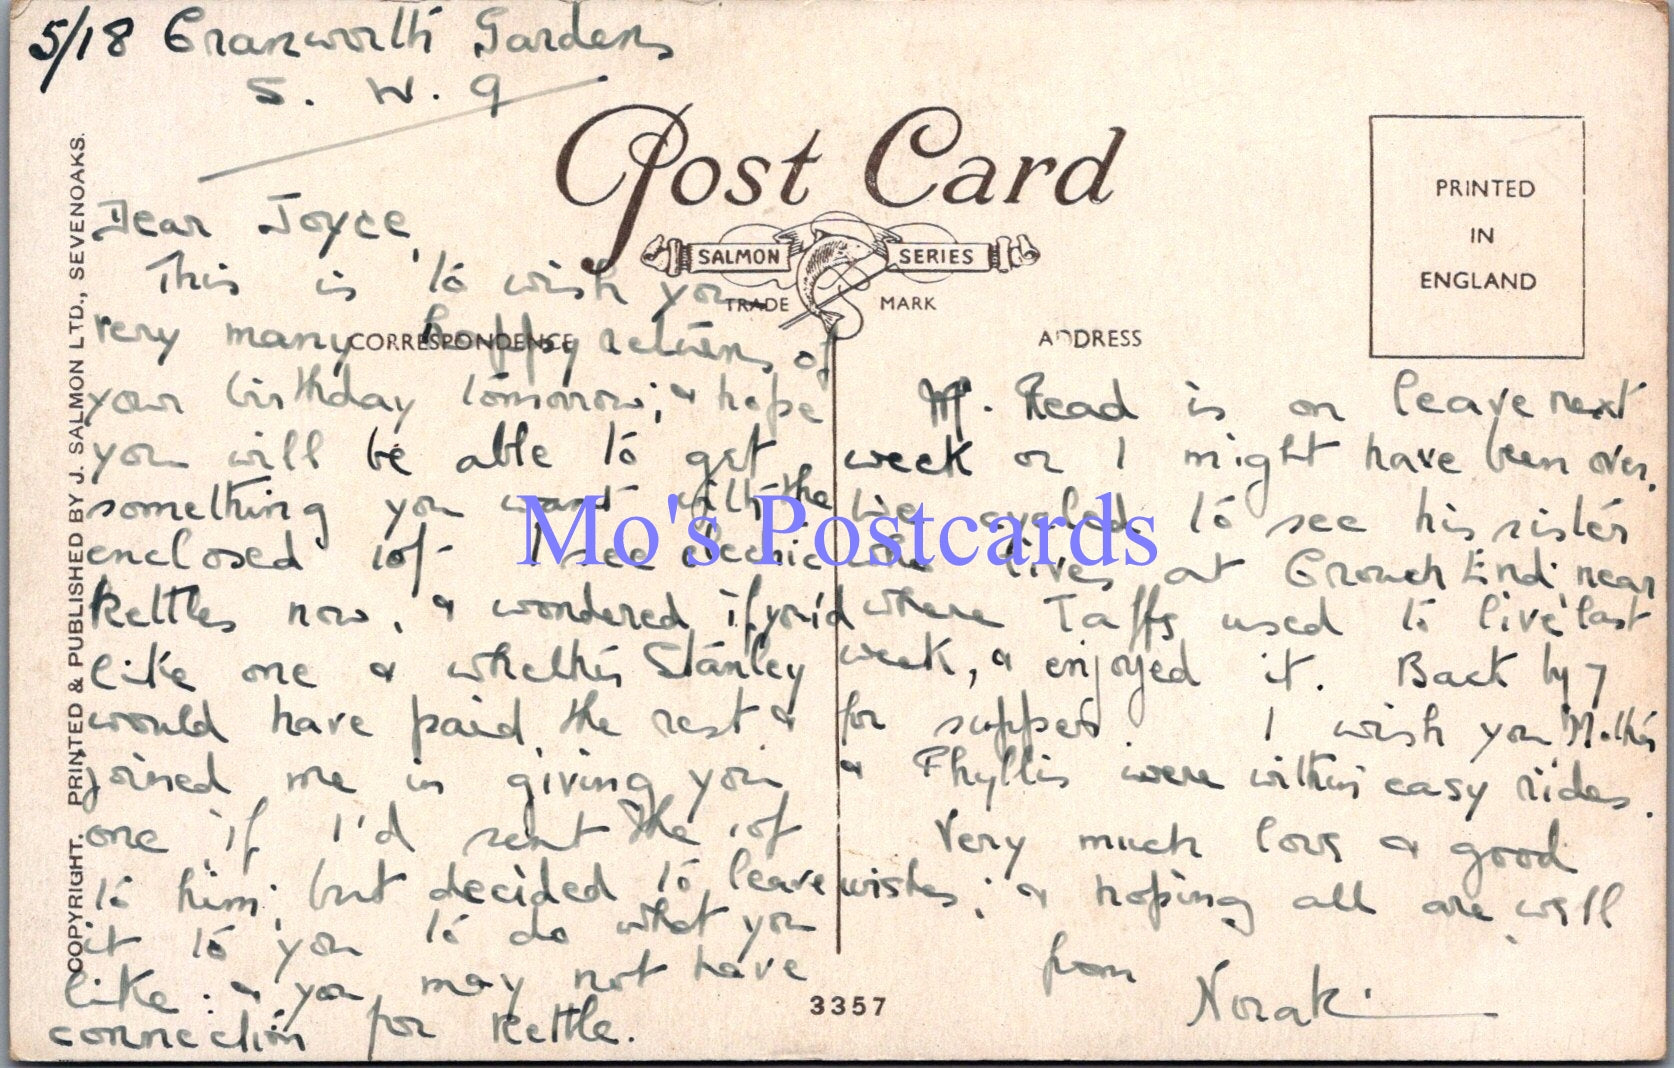 5/18 Cranworth Gardens
S. W. 9
Post Card
SALMON SERIES
TRADE MARK
CORRESPONDENCE
ADDRESS
PRINTED
IN
ENGLAND
COPYRIGHT. PRINTED & PUBLISHED BY J. SALMON LTD., SEVENOAKS.
Dear Joyce,
This is to wish you
very many happy returns of
your birthday tomorrow; & hope
you will be able to get
something you want with the
enclosed 10/- I see electric
kettles now, & wondered if you'd
like one & whether Stanley
would have paid the rest &
joined me in giving you
one if I'd sent the 10/-
to him; but decided to leave
it to you to do what you
like: & you may not have
connection for kettle.
M. Read is on leave next
week or I might have been over.
We cycled to see his sister
who lives at Crouch End; near
where Taffs used to live last
week, & enjoyed it. Back by 7
for supper. I wish you Mother
& Phyllis were within easy rides.
Very much love & good
wishes; & hoping all are well
from
Norah
3357
Mo's Postcards